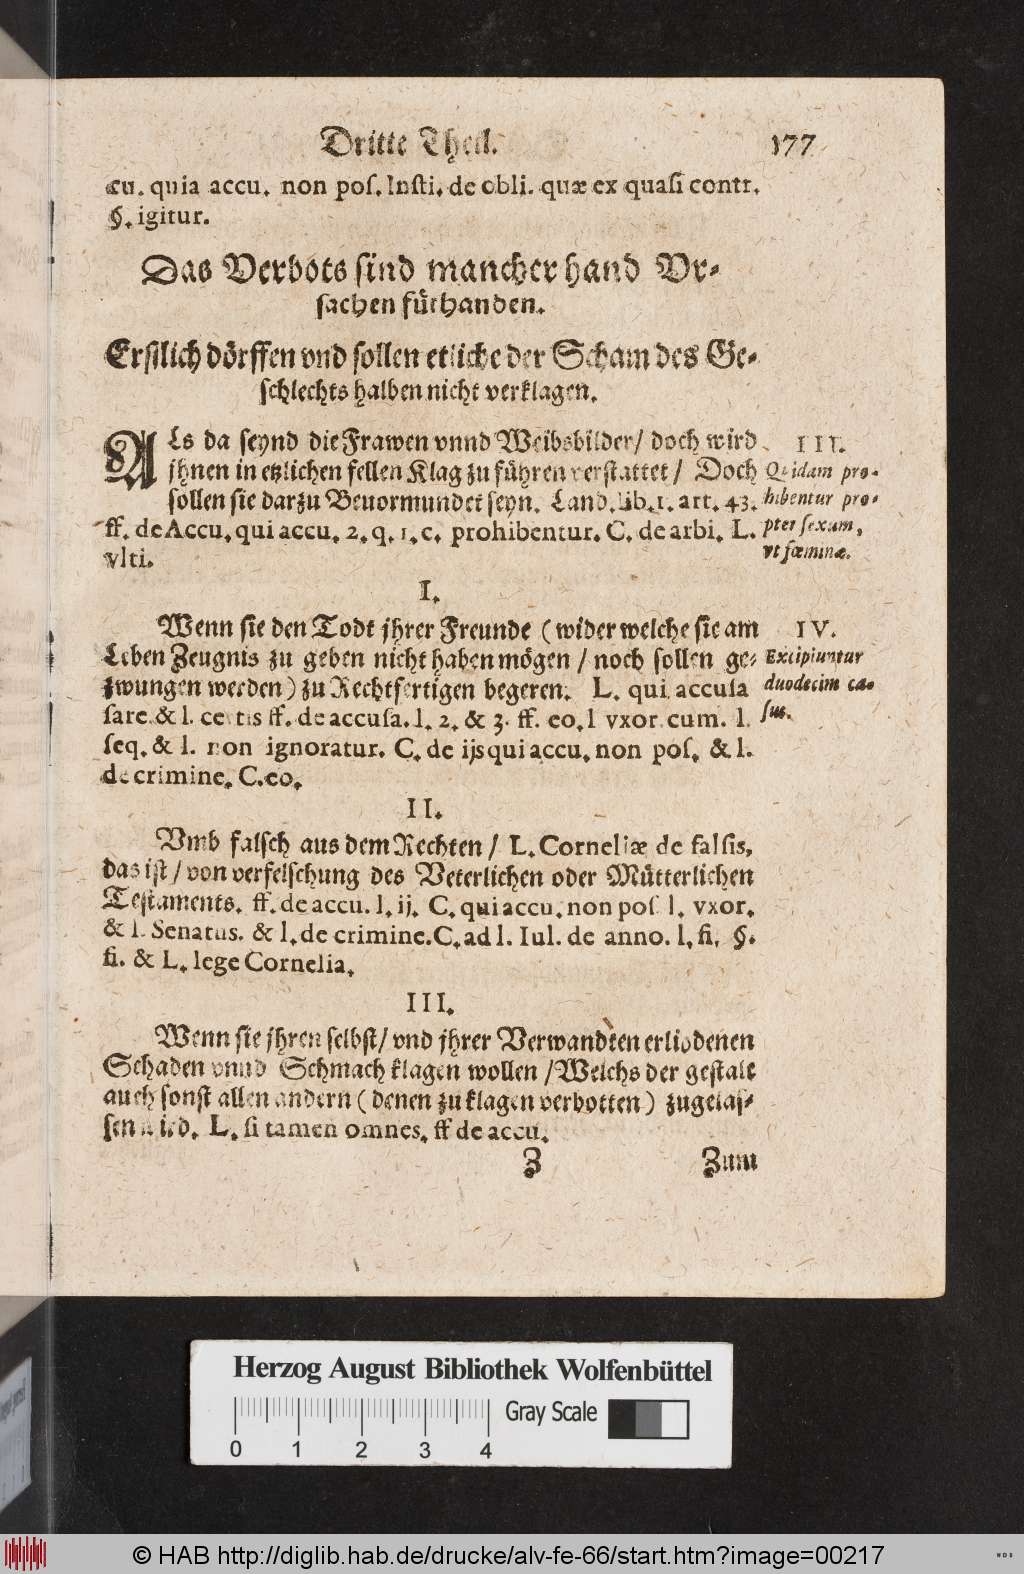 Dritte Theil. 177
cu. quia accu. non pos. Insti. de obli. quæ ex quasi contr.
§. igitur.
Das Verbots sind mancher hand Vr-
sachen fürhanden.
Erstlich dörffen vnd sollen etliche der Scham des Ge-
schlechts halben nicht verklagen.
ALs da seynd die Frawen vnnd Weibsbilder/ doch wird
jhnen in etzlichen fellen Klag zu führen verstattet/ Doch
sollen sie darzu Beuormundet seyn. Land. lib. 1. art. 43.
ff. de Accu. qui accu. 2. q. 1. c. prohibentur. C. de arbi. L.
vlti.
III.
Quidam pro-
hibentur pro-
pter sexum,
vt fœminæ.
I.
Wenn sie den Todt jhrer Freunde (wider welche sie am
Leben Zeugnis zu geben nicht haben mögen / noch sollen ge-
zwungen werden) zu Rechtfertigen begeren. L. qui accusa
sare. & l. certis ff. de accusa. l. 2. & 3. ff. eo. l vxor cum. l.
seq. & l. non ignoratur. C. de ijs qui accu. non pos. & l.
de crimine. C. eo.
IV.
Excipiuntur
duodecim ca-
sus.
II.
Vmb falsch aus dem Rechten / L. Corneliæ de falsis,
das ist / von verfelschung des Veterlichen oder Mütterlichen
Testaments. ff. de accu. l. ij. C. qui accu. non pos. l. vxor.
& l. Senatus. & l. de crimine. C. ad l. Iul. de anno. l. fi. §.
fi. & L. lege Cornelia.
III.
Wenn sie jhren selbst/ vnd jhrer Verwandten erliodenen
Schaden vnnd Schmach klagen wollen / Welchs der gestalt
auch sonst allen andern (denen zu klagen verbotten) zugelas-
sen wird. L. si tamen omnes. ff de accu.
Z Zum
Herzog August Bibliothek Wolfenbüttel
Gray Scale
0 1 2 3 4
© HAB http://diglib.hab.de/drucke/alv-fe-66/start.htm?image=00217